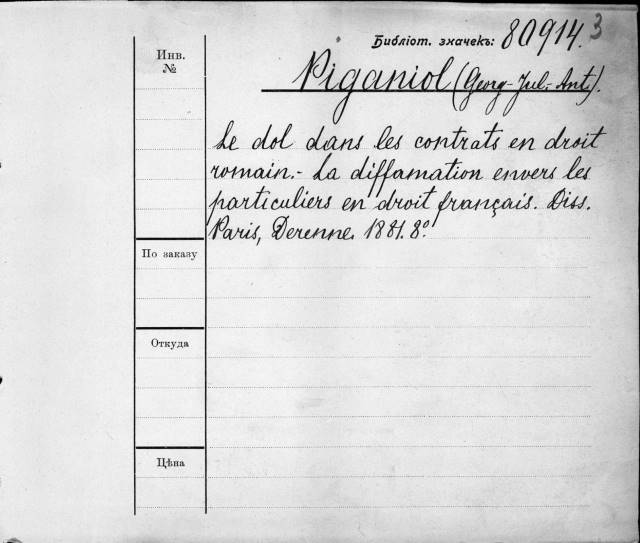 Библіот. значекъ: 80914.3
Инв.
№
Piganiol (Georg-Jul.-Ant.).
Le dol dans les contrats en droit
romain.- La diffamation envers les
particuliers en droit français. Diss.
Paris, Derenne. 1881. 8º.
По заказу
Откуда
Цѣна